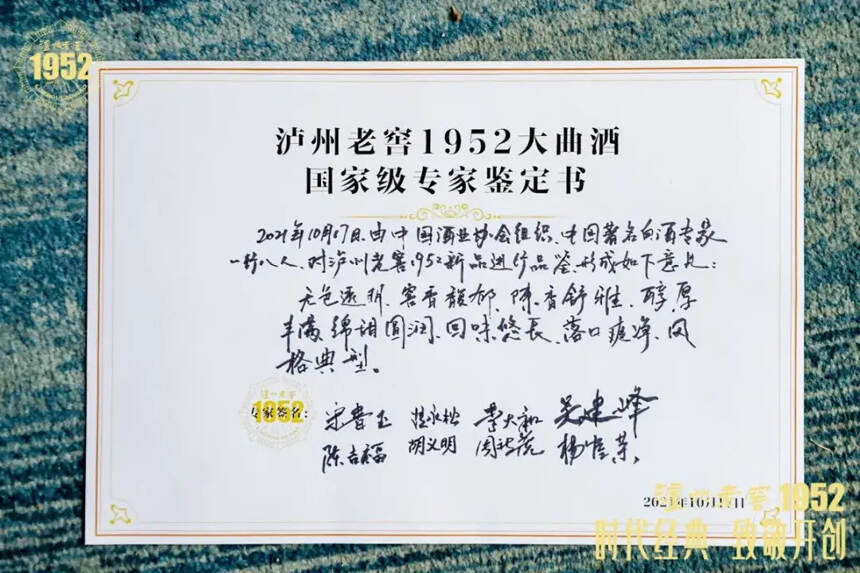 泸州老窖
1952
泸州老窖1952大曲酒
国家级专家鉴定书
2021年10月17日,由中国酒业协会组织、中国著名白酒专家
一行八人、对泸州老窖1952新品进行品鉴,形成如下意见:
无色透明、窖香馥郁、陈香舒雅、醇厚
丰满、绵甜圆润、回味悠长、落口爽净、风
格典型。
泸州老窖
1952
专家签名:
宋书玉 沈怡方 李大和 吴建峰
陈吉福 胡义明 周社茂 杨官荣
2021年10月17日
泸州老窖 1952
时代经典 致敬开创